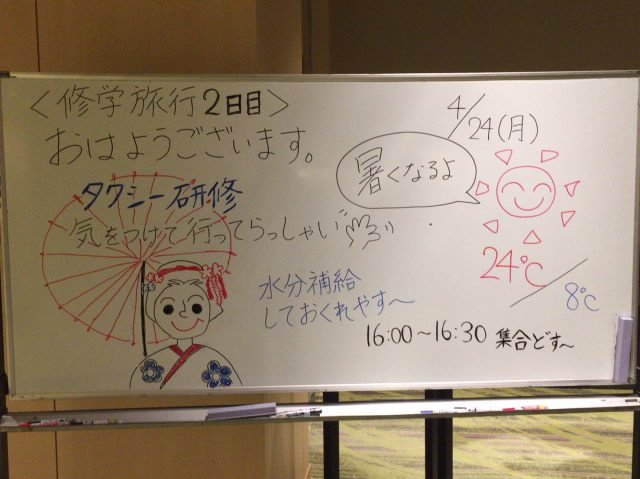 <修学旅行2日目>
4/24(月)
おはようございます。
暑くなるよ
タクシー研修
気をつけて行ってらっしゃい
24℃/8℃
水分補給
しておくれやす〜
16:00〜16:30 集合どす〜